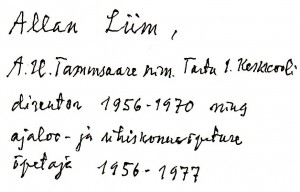 Allan Liim,
A.H. Tammsaare nim. Tartu 1. Keskkooli
direktor 1956-1970 ning
ajaloo- ja ühiskonnaõpetuse
õpetaja 1956-1977